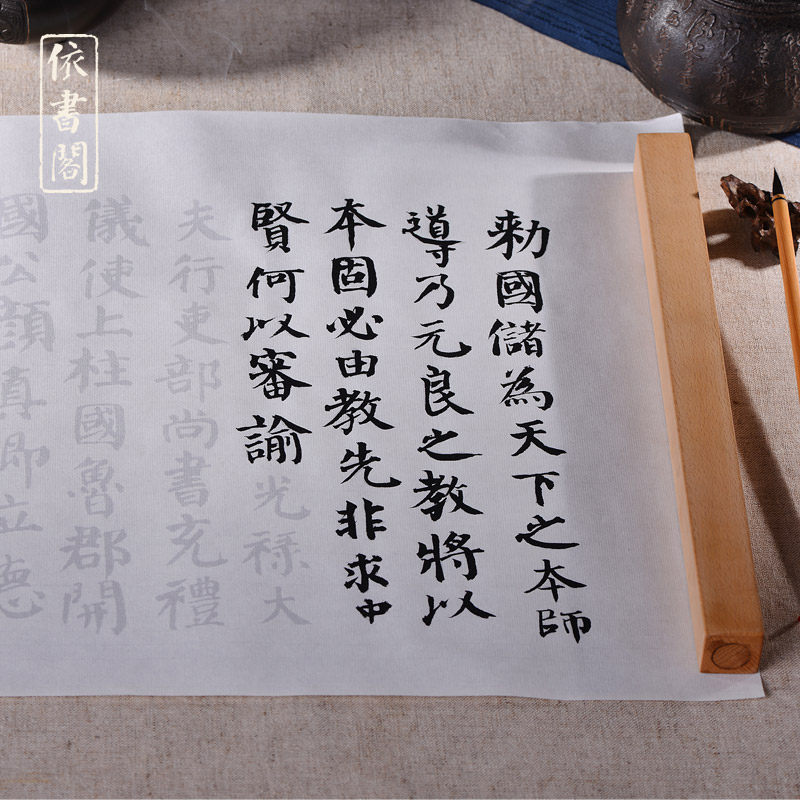 依書閣
勑國儲為天下之本師
導乃元良之教將以
本固必由教先非求中
賢何以審諭光祿大
夫行吏部尚書充禮
儀使上柱國魯郡開
國公顏真卿立德